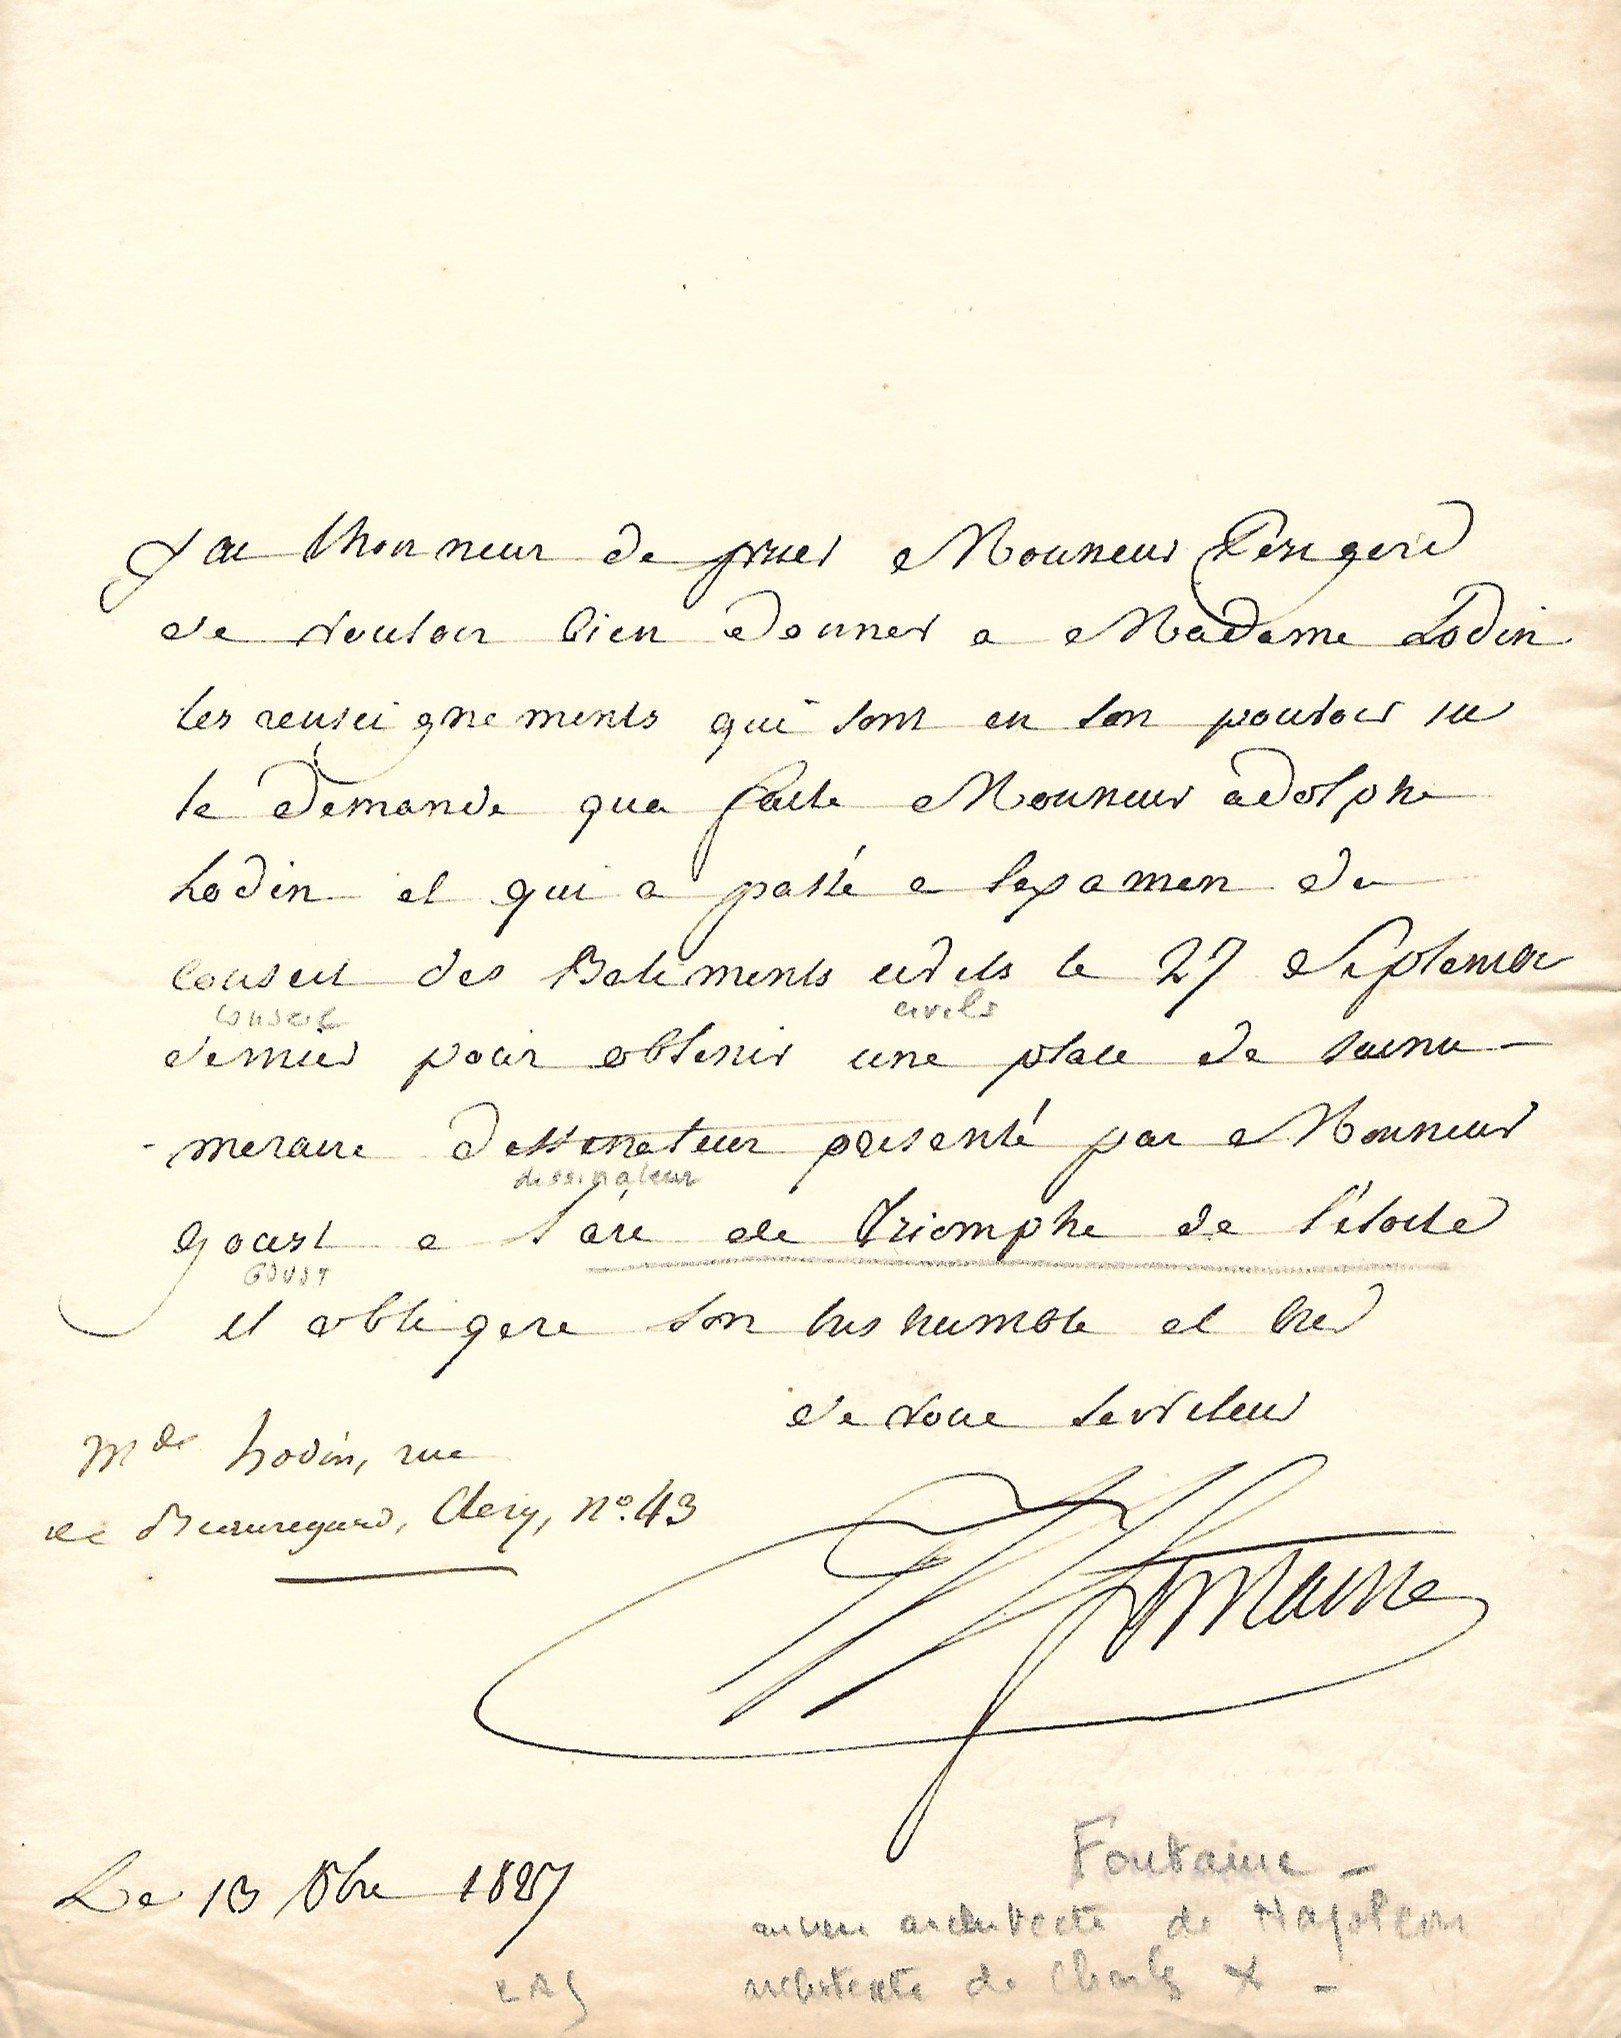 J'ai lhonneur de prier Monsieur Perigord
de vouloir bien donner a Madame Lodin
les renseignements qui sont en son pouvoir sur
la demande qua faite Monsieur adolphe
Lodin et qui a passé a lexamen du
Conseil des Batiments civils le 27 Septembre
conseil civils
dernier pour obtenir une place de surnu-
-meraire dessinateur presenté par Monsieur
dessinateur
goust a l'arc de Triomphe de l'étoile
GOUST
il obligera son tres humble et tres
devoue serviteur
Mde Lodin, rue
de Beauregard, Clery, n° 43
Fontaine
Le 13 8bre 1827
Fontaine -
architecte de Napoleon
architecte de Charles X -
LAS